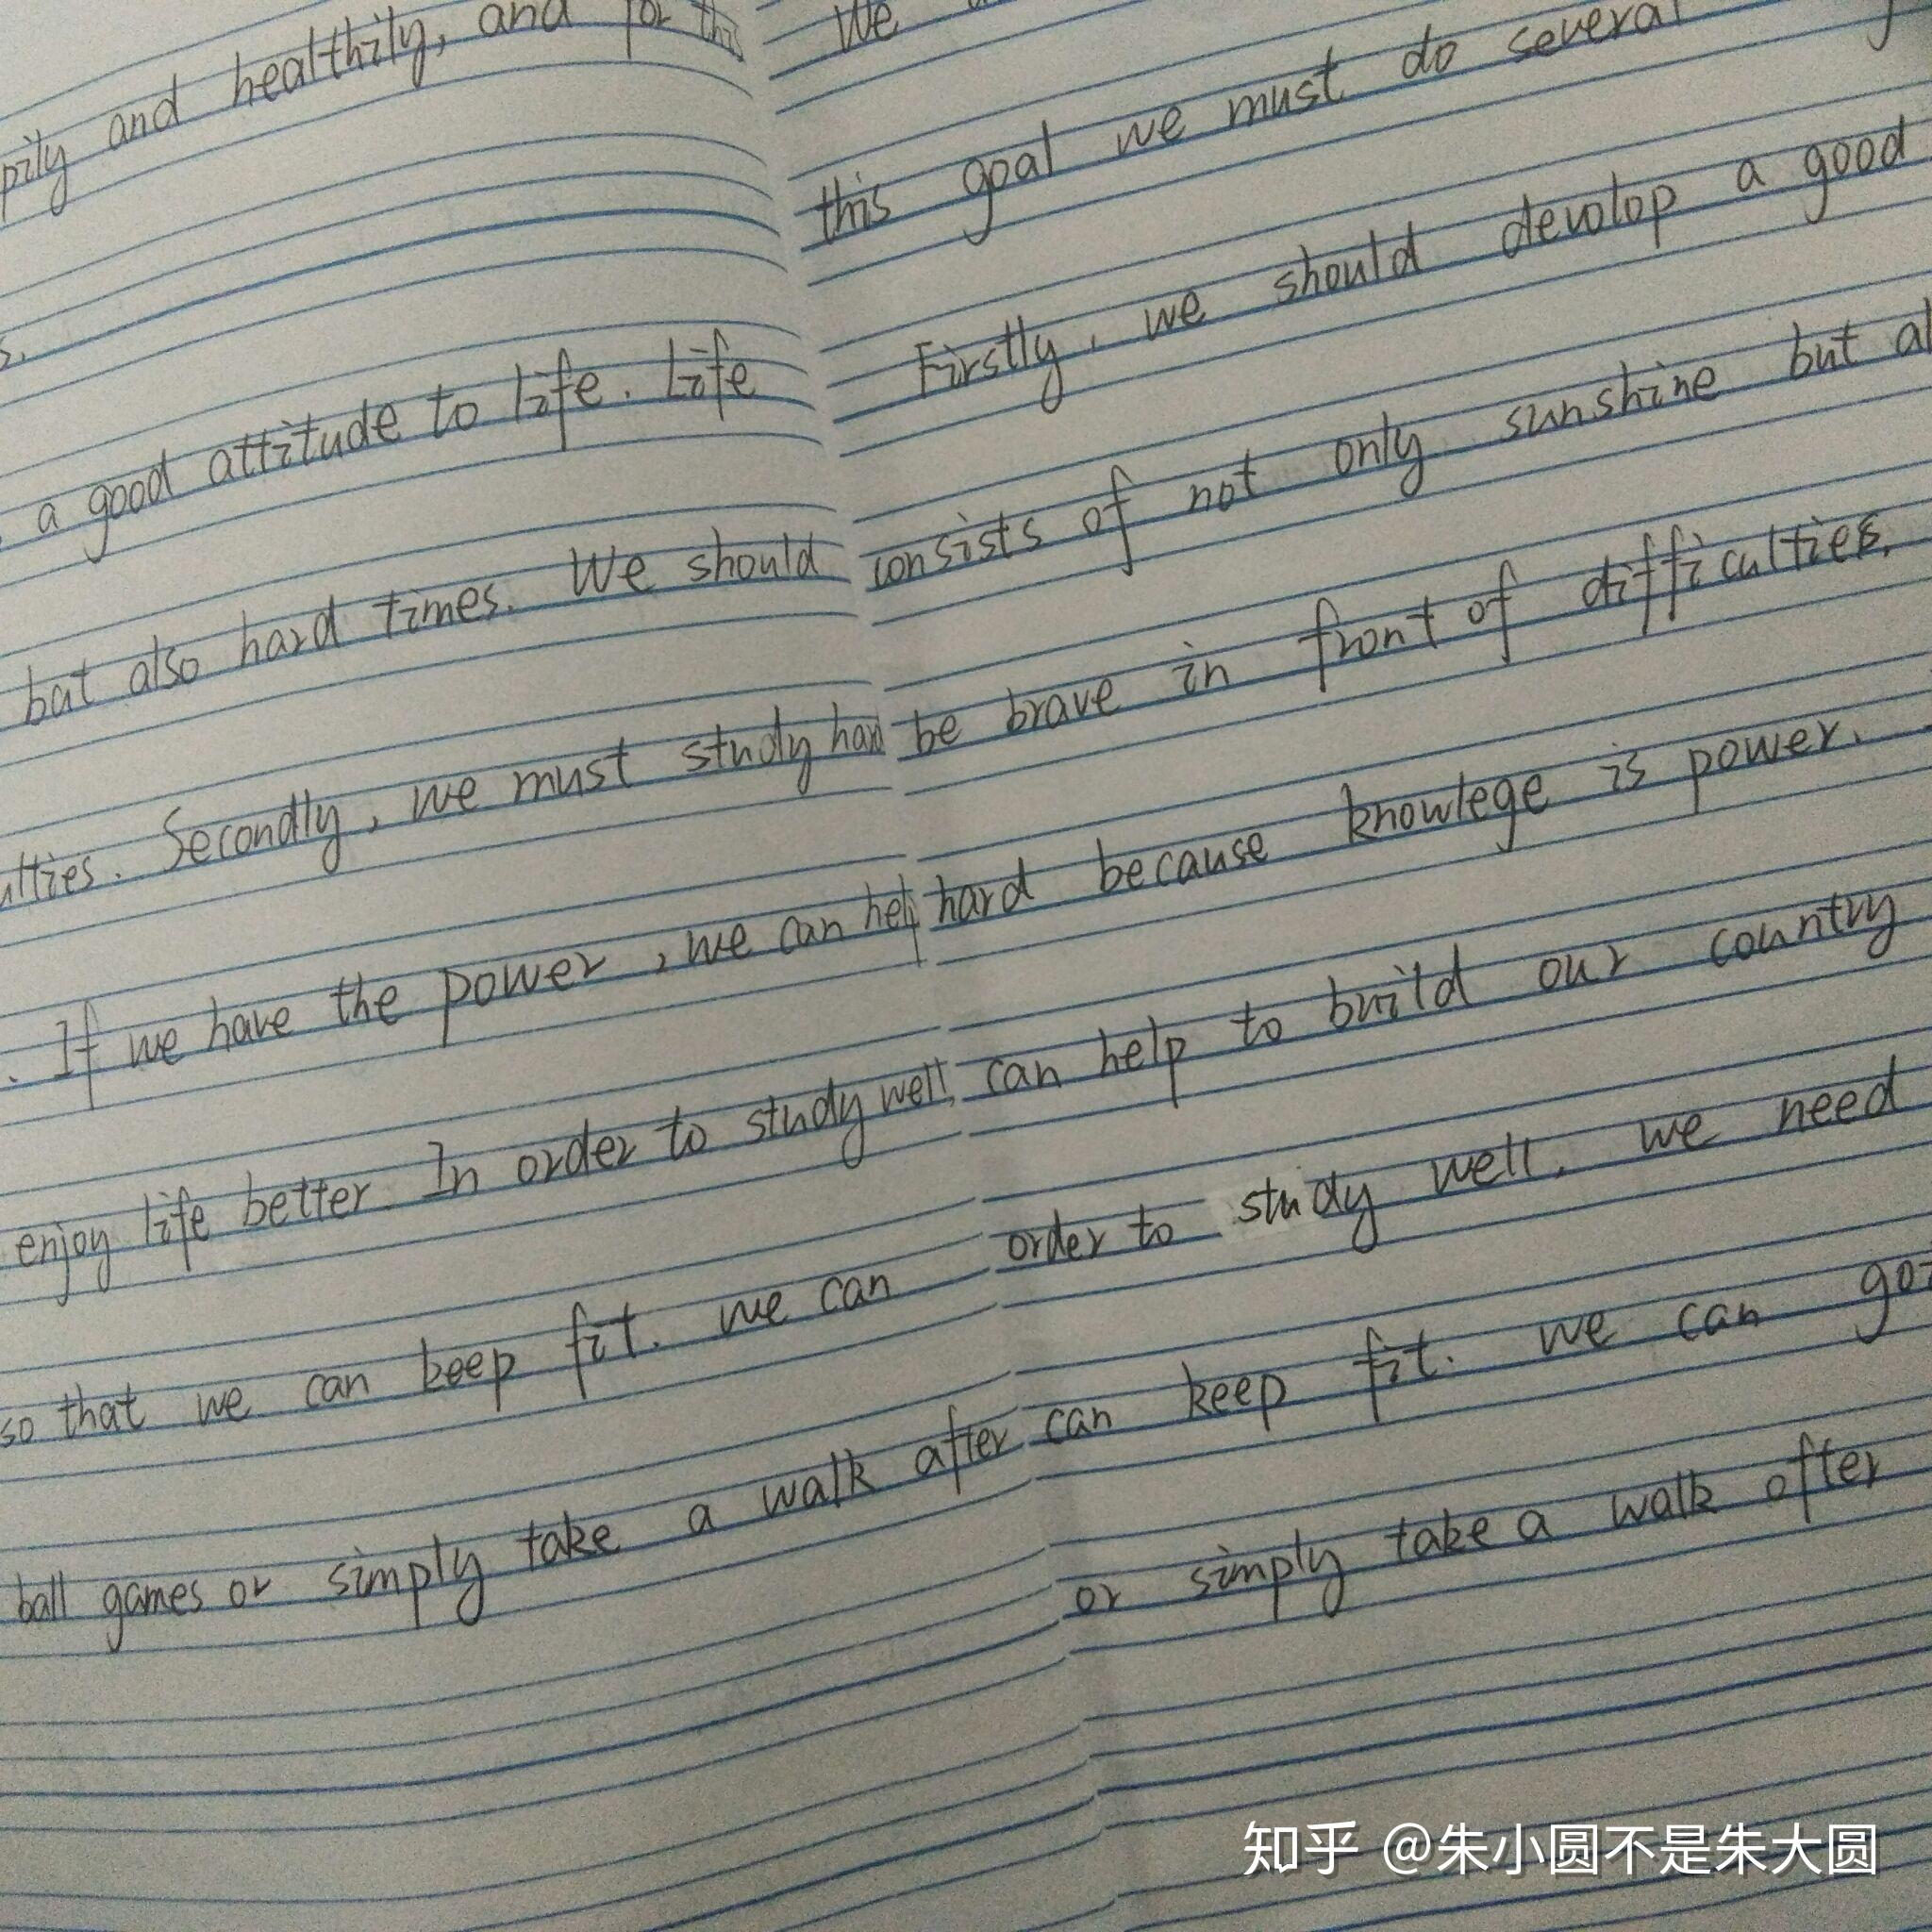 pily and healthily, and for this
s.
a good attitude to life. Life
but also hard times. We should
ulties. Secondly, we must study hard
. If we have the power, we can help
enjoy life better. In order to study well,
so that we can keep fit. we can
ball games or simply take a walk after
We
this goal we must do several
Firstly, we should devolop a good
consists of not only sunshine but al
be brave in front of difficulties.
hard because knowlege is power.
can help to build our country
order to study well. we need
can keep fit. we can go
or simply take a walk after
知乎 @朱小圆不是朱大圆